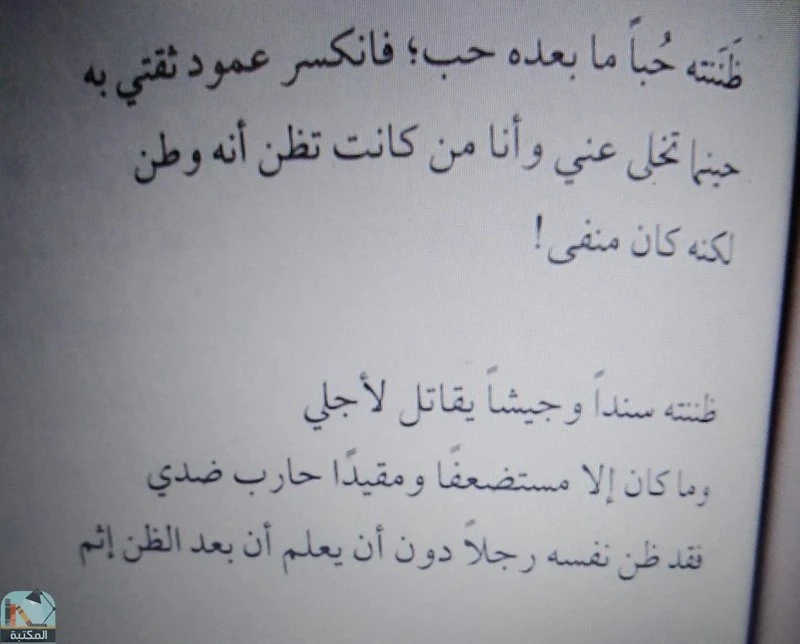 ظَنَنته حُباً ما بعده حب؛ فانكسر عمود ثقتي به
حينما تخلى عني وأنا من كانت تظن أنه وطن
لكنه كان منفى!
ظننته سنداً وجيشاً يقاتل لأجلي
وما كان إلا مستضعفًا ومقيدًا حارب ضدي
فقد ظن نفسه رجلاً دون أن يعلم أن بعد الظن إثم
المكتبة